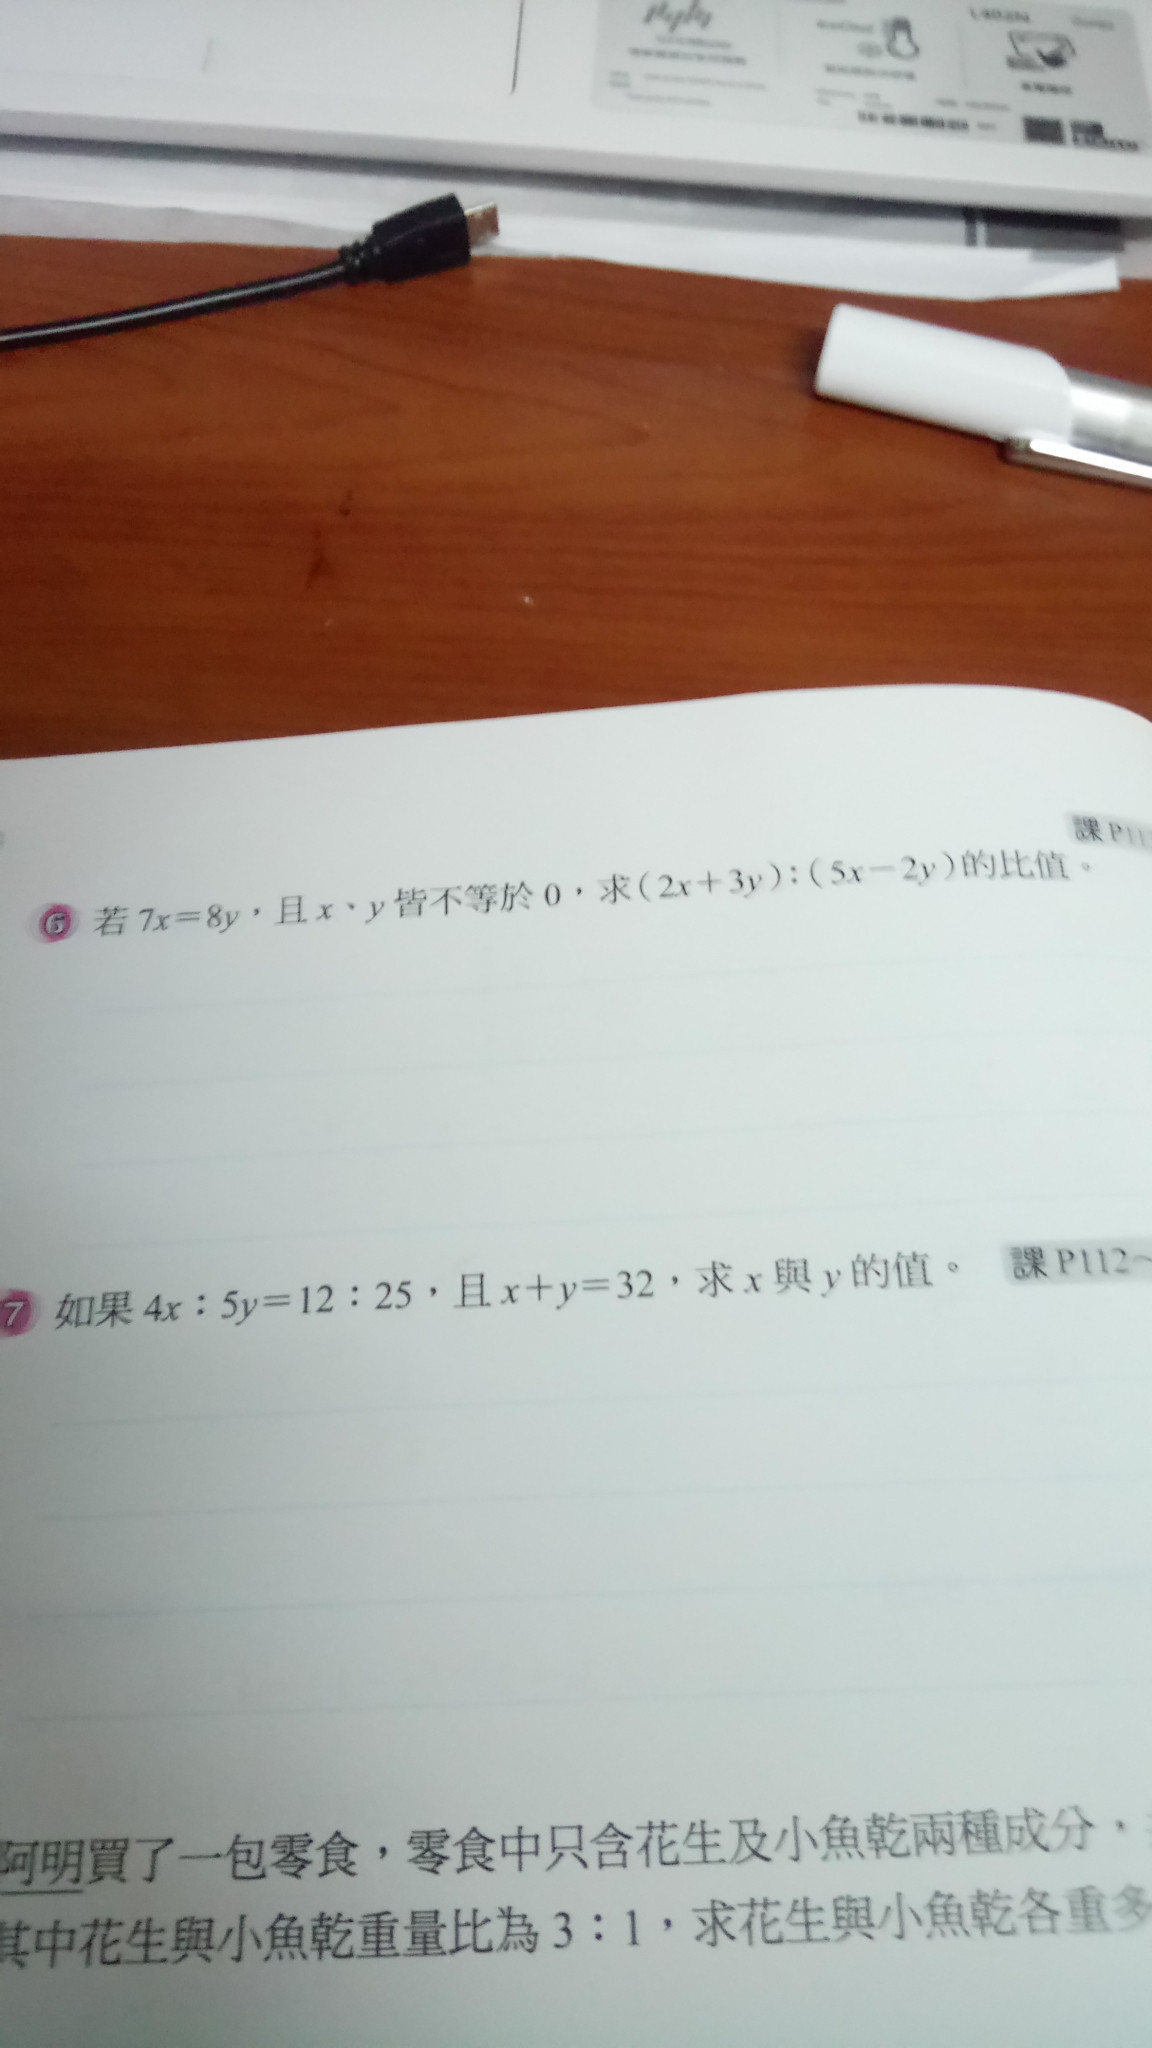 課 P11
6 若 7x=8y，且 x、y 皆不等於 0，求(2x+3y):(5x-2y)的比值。
7 如果 4x：5y=12：25，且 x+y=32，求 x 與 y 的值。 課 P112~
阿明買了一包零食，零食中只含花生及小魚乾兩種成分，
其中花生與小魚乾重量比為 3：1，求花生與小魚乾各重多